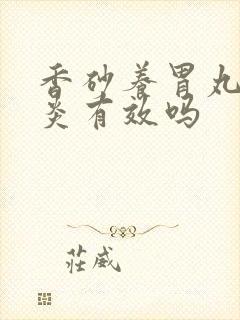 香砂养胃丸
炎有效吗
莊威